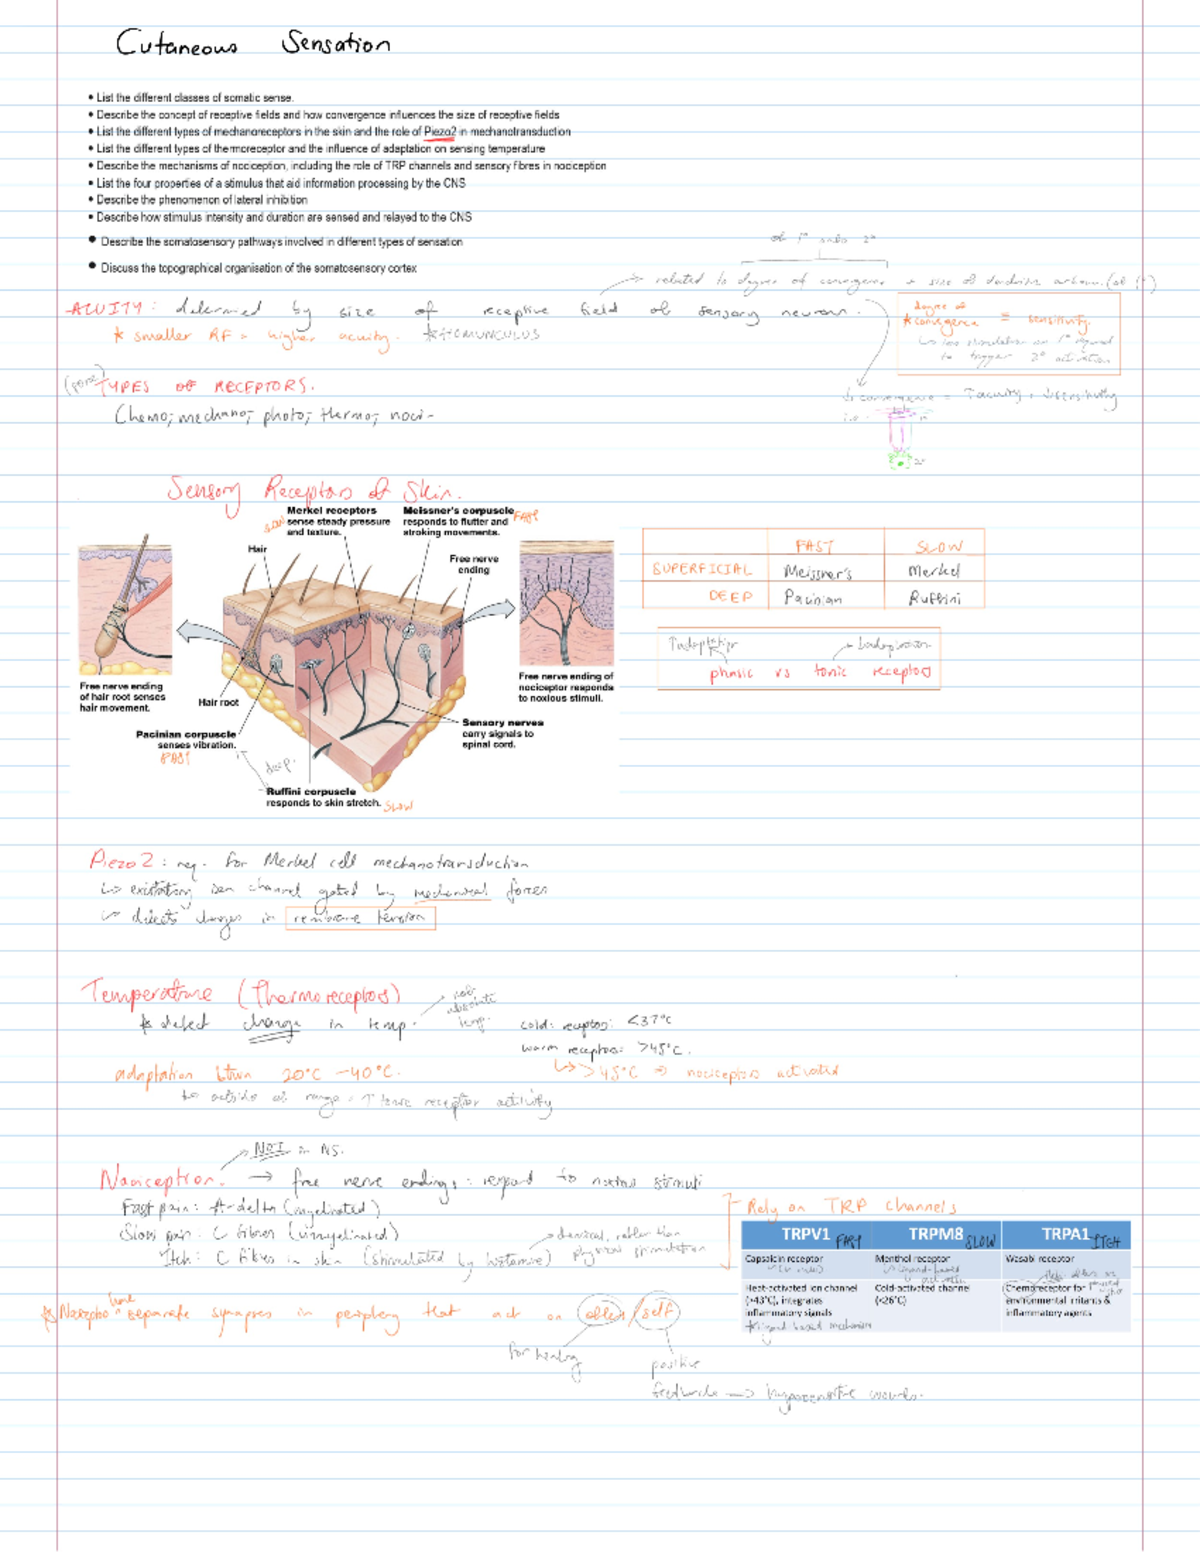 Cutaneous Sensation
• List the different classes of somatic sense.
• Describe the concept of receptive fields and how convergence influences the size of receptive fields
• List the different types of mechanoreceptors in the skin and the role of Piezo2 in mechanotransduction
• List the different types of thermoreceptor and the influence of adaptation on sensing temperature
• Describe the mechanisms of nociception, including the role of TRP channels and sensory fibres in nociception
• List the four properties of a stimulus that aid information processing by the CNS
• Describe the phenomenon of lateral inhibition
• Describe how stimulus intensity and duration are sensed and relayed to the CNS
• Describe the somatosensory pathways involved in different types of sensation
• Discuss the topographical organisation of the somatosensory cortex
of 1° 2°
related to degree of convergence + size of
ACUITY: determined by size of receptive field of sensory neuron.
* smaller RF = higher acuity. *HOMUNCULUS
degree of
*convergence = sensitivity
to trigger 2° activation
↓ convergence = ↑acuity, ↓sensitivity
TYPES OF RECEPTORS.
Chemo-, mechano-, photo-, thermo-, noci-
Sensory Receptors of Skin.
Merkel receptors
sense steady pressure
and texture.
SLOW
Meissner's corpuscle
responds to flutter and
stroking movements.
FAST
Hair
Free nerve
ending
Free nerve ending
of hair root senses
hair movement.
Hair root
Free nerve ending of
nociceptor responds
to noxious stimuli.
Pacinian corpuscle
senses vibration.
FAST
Sensory nerves
carry signals to
spinal cord.
deep.
Ruffini corpuscle
responds to skin stretch. SLOW
FAST SLOW
SUPERFICIAL Meissner's Merkel
DEEP Pacinian Ruffini
phasic vs tonic receptors
Piezo2: req. for Merkel cell mechanotransduction
↳ excitatory ion channel gated by mechanical forces
↳ detects changes in membrane tension
Temperature (Thermoreceptors)
* detect change in temp.
not absolute temp.
cold: receptors: <37°C
warm receptors: >45°C.
↳ >45°C ⇒ nociceptors activated
adaptation btwn 20°C - 40°C.
↳ outside of range: ↑ tonic receptor activity
NOT in NS.
Nociception. → free nerve endings: respond to noxious stimuli
Fast pain: A-delta (myelinated)
Slow pain: C fibres (unmyelinated)
Itch: C fibres in skin (stimulated by histamine)
physical stimulation
Rely on TRP channels
TRPV1 FAST TRPM8 SLOW TRPA1 ITCH
Capsaicin receptor Menthol receptor Wasabi receptor
Heat-activated ion channel
(>43°C), integrates
inflammatory signals
Cold-activated channel
(<26°C)
Chemoreceptor for
environmental irritants &
inflammatory agents
separate synapses in periphery that act on others/self
for healing
positive
feedback → hypersensitive wounds.